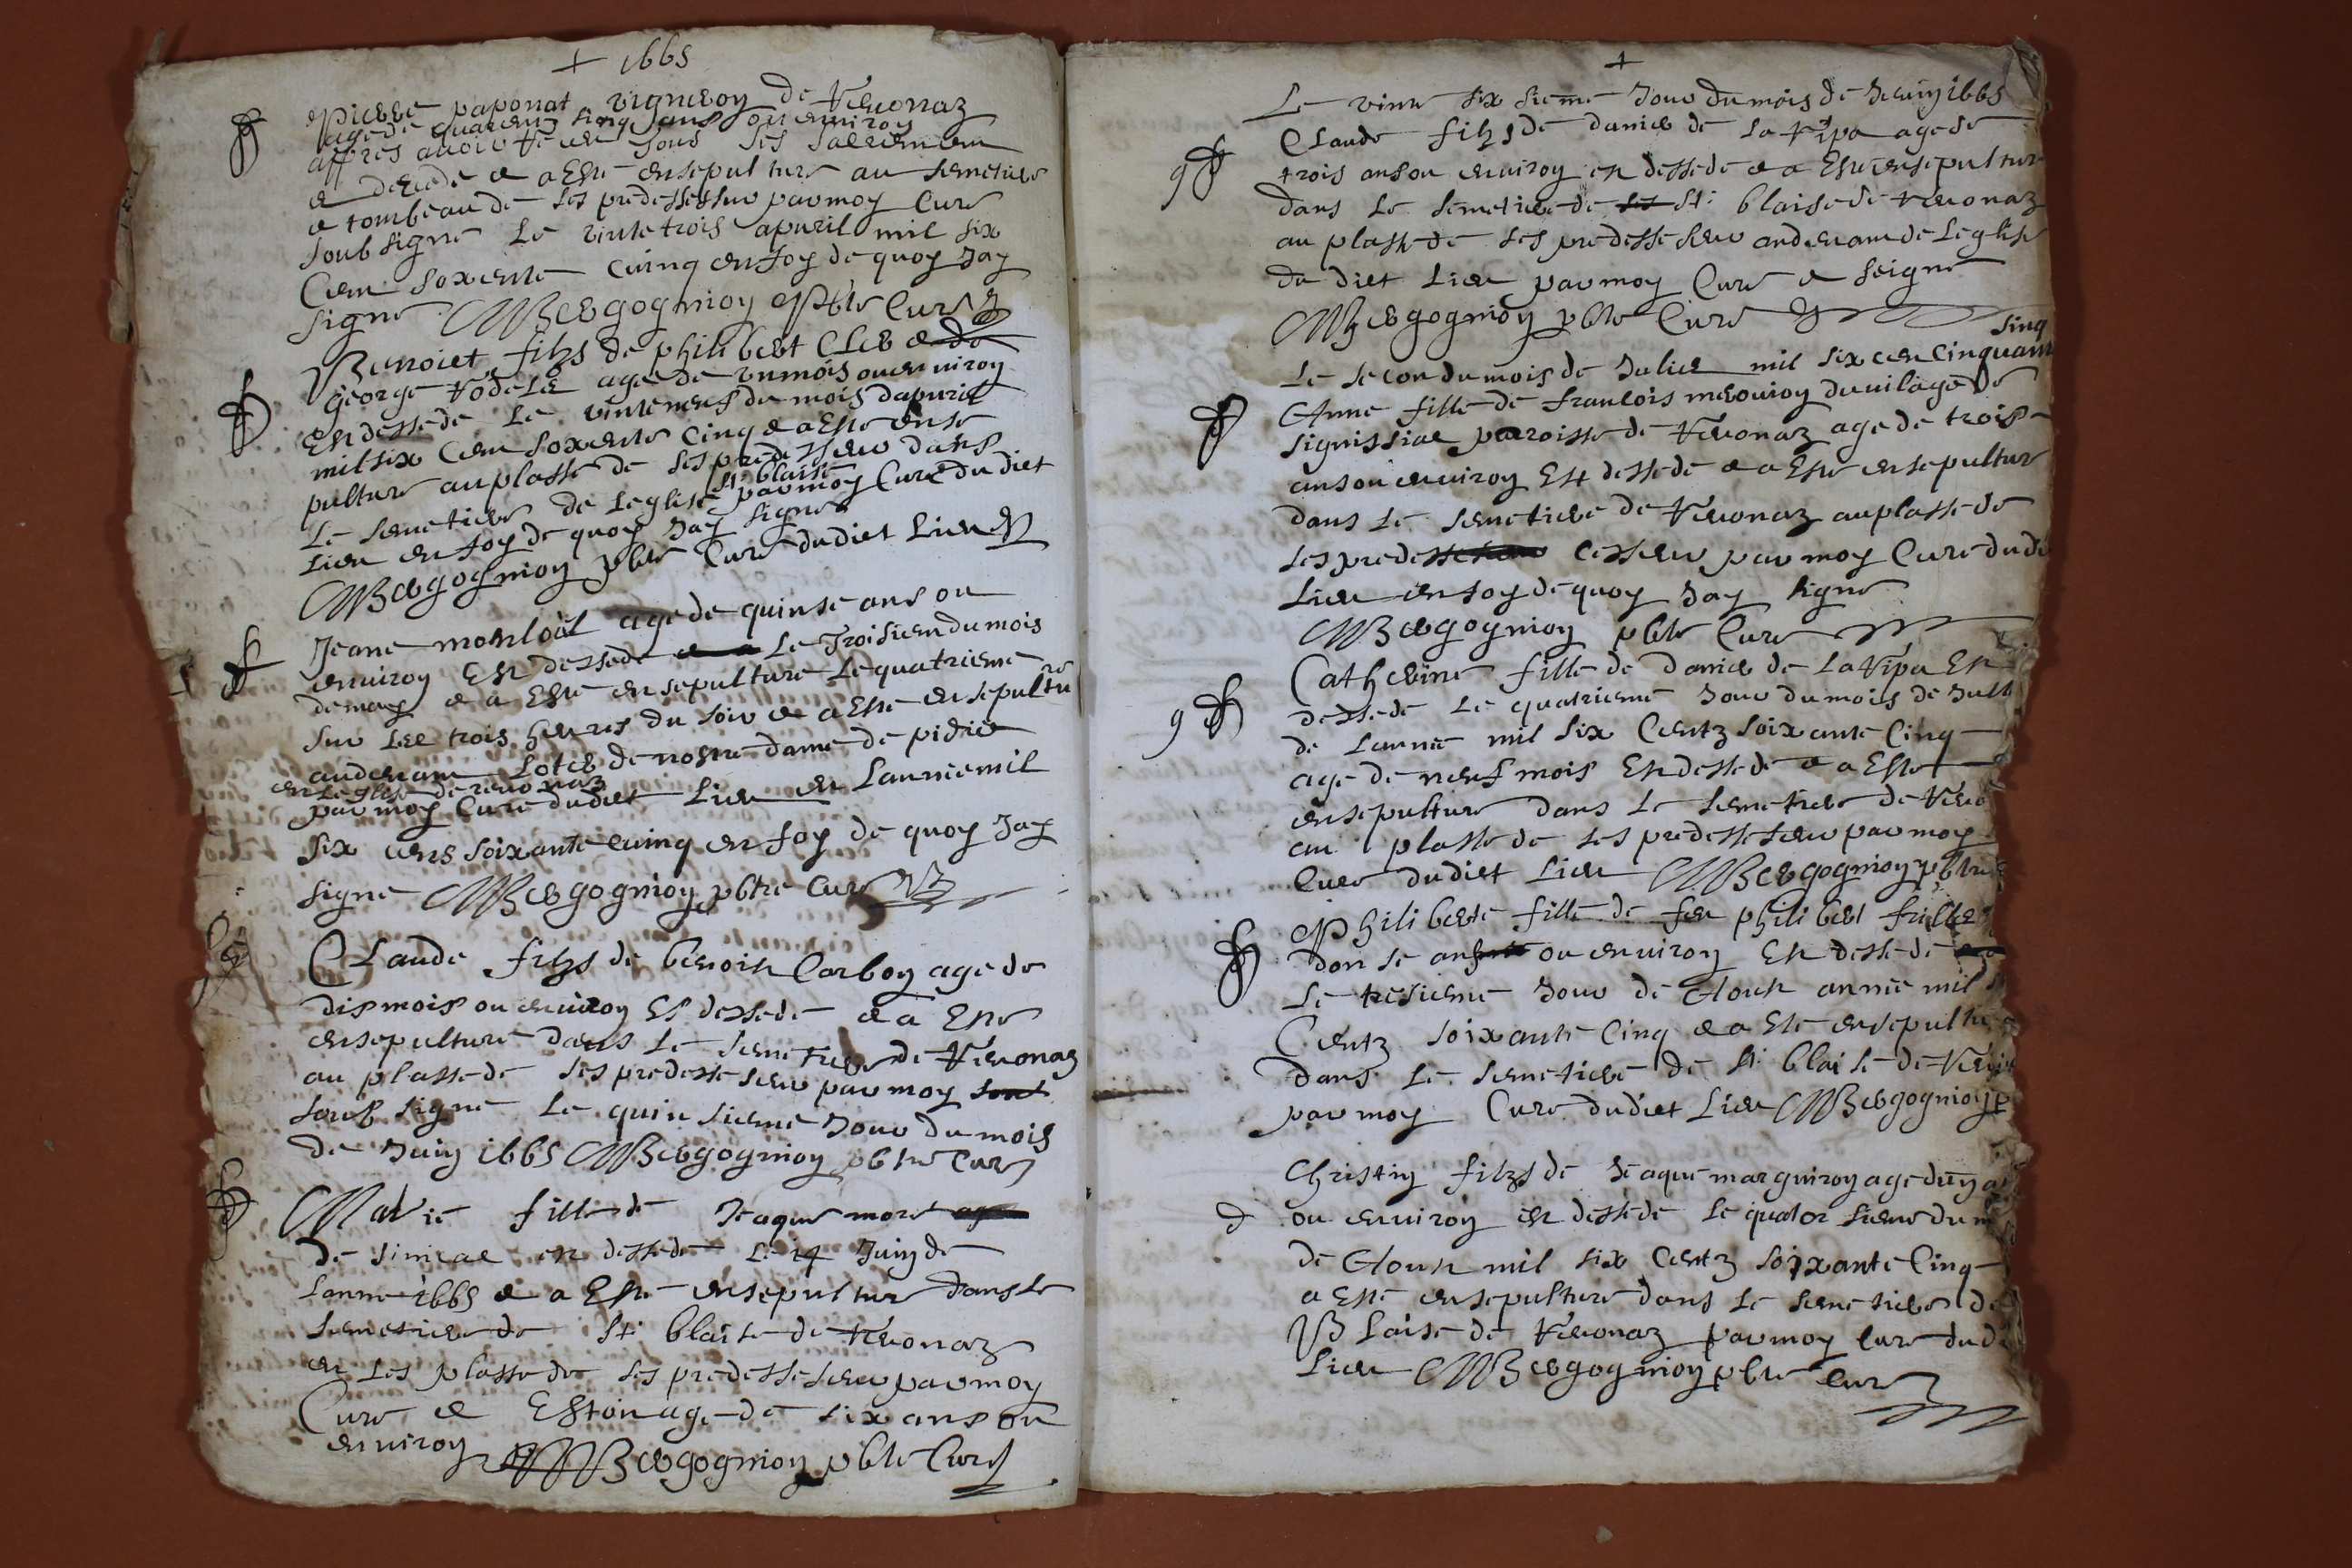 + 1665
Pierre paponat vigneron de Veuonaz
age de quarent sinq ans ou enuiron
apres auoir receu tous ses sacremen
et decede et a Este ensepulture au semetiere
et tombeau de ses predessesseur par moy Cure
soub signe Le vinte trois apuril mil six
Cens soxente Cuinq en foy de quoy Jay
signe MBergognion Pbtre Cure
Benoict filz de philibert Cler et de
george age de vn mois ou enuiron
Est dessede Le vinteneuf du mois dapuril
mil six Cens soxente Cinq et a Este ense
pulture au plasse de ses predesseseur dans
St blaise
Le semetiere de Leglise par moy Cure du diet
Lieu en foy de quoy Jay signe
MBergognion pbtre Cure dudiet Lieu
Jeane monloüil age de quinse ans ou
enuiron Est dessede Le Troisiem du mois
de may et a Este ensepulture Le quatriesme
sur Lee trois heures du soir et a Este ensepulture
au deuant Lotel de nostre dame de pidie
en Leglise de reuonaz
par moy Cure dudiet Lieu en Lannie mil
six cens soixante cuinq en foy de quoy Jay
signe MBergognion pbtre Cure
CLaude filzs de benoist Carbon age de
dis mois ou enuiron Est dessede et a Este
ensepulture dans Le semetiere de Veuonaz
au plasse de ses predessesseur par moy
soub signe Le quinsieme Jour du mois
de Juin 1665 MBergognion pbtre Cure
Marie fille de Jeaque moret
de est dessede Le 14 Juin de
Lanne 1665 et a Este ensepulture dans Le
semetiere de St blaise de Veuonaz
en Les plasse de ses predessesseur par moy
Cure et Estoit age de six ans ou
enuiron MBergognion pbtre Cure
+
Le vint six sieme Jour du mois de Jeuin 1665
CLaude filzs de daniel de La age de
trois ans ou enuiron est dessede et a Este ensepulture
dans Le semetiere de St blaise de Veuonaz
au plasse de ses predessesseur au deuant de Leglise
du diet Lieu par moy Cure et seigne
MBergognion pbtre Cure
sinq
Le secon du mois de Juliet mil six cen Cinquant
Anne fille de francois du uilage de
signissiae paroisse de Veuonaz age de trois
ans ou enuiron Est dessede et a Este ensepulture
dans Le semetiere de Veuonaz au plasse de
ses predes cesseur par moy Cure du di
Lieu en foy de quoy Jay signe
MBergognion pbtre Cure
Catherine fille de daniel de La Est
dessede Le quatrieme Jour du mois de Jull
de Lannee mil six Centz soixante Cinq
age de neuf mois Est dessede et a Este
ensepulture dans Le semetiere de Veuo
au plasse de ses predessesseur par moy
Cure dudiet Lieu MBergognion pbtre
Philiberte fille de feu philibert
don se ans ou enuiron Est dessede
Le tresieme Jour de Aoust annee mil
Centz soixante Cinq et a Este ensepultu
dans Le semetiere de St blaise de Veuo
par moy Cure dudiet Lieu MBergognion p
Christin filzs de Jeaque marguiron age dun a
ou enuiron est dessede Le quatorsieme du m
de Aoust mil six Centz soixante Cinq
a Este ensepulture dans Le semetiere de
Blaise de Veuonaz par moy Cure dudi
Lieu MBergognion pbtre Cure